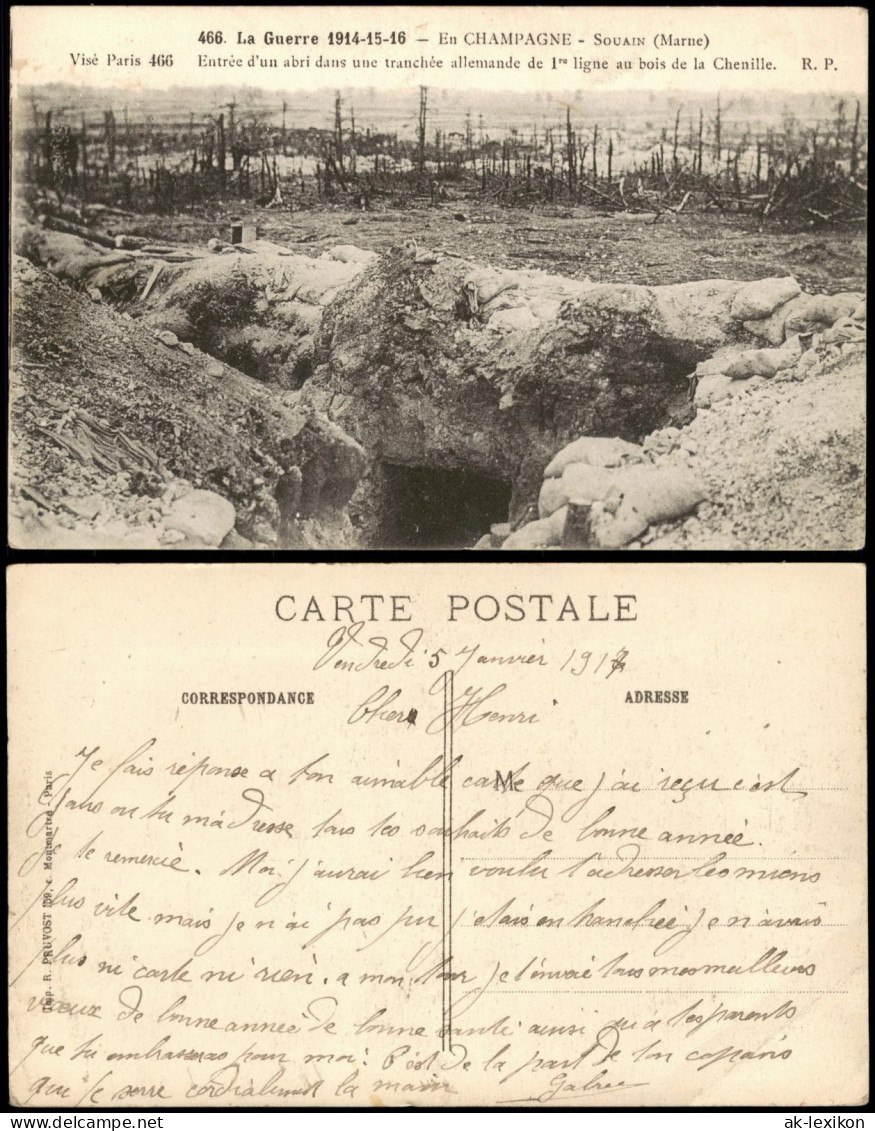 466. La Guerre 1914-15-16 — En CHAMPAGNE - SOUAIN (Marne)
Visé Paris 466 Entrée d'un abri dans une tranchée allemande de 1re ligne au bois de la Chenille. R. P.
CARTE POSTALE
Vendredi 5 Janvier 1917
CORRESPONDANCE
ADRESSE
Cher Henri
Je fais réponse a ton aimable carte que j'ai reçu c'est
M
dans ou tu m'adresse tous tes souhaits de bonne année.
je te remercie. Moi j'aurai bien voulu t'adresser les miens
plus vite mais je n'ai pas pu j'etais en tranchée, je n'avais
plus ni carte ni rien. a mon tour je t'envoie tous mes meilleurs
vœux de bonne année de bonne santé ainsi qu'a tes parents
que tu embrasseras pour moi. C'est de la part de ton copain
qui te serre cordialement la main
Imp. R. PRUVOST 159, r. Montmartre - Paris
ak-lexikon.com